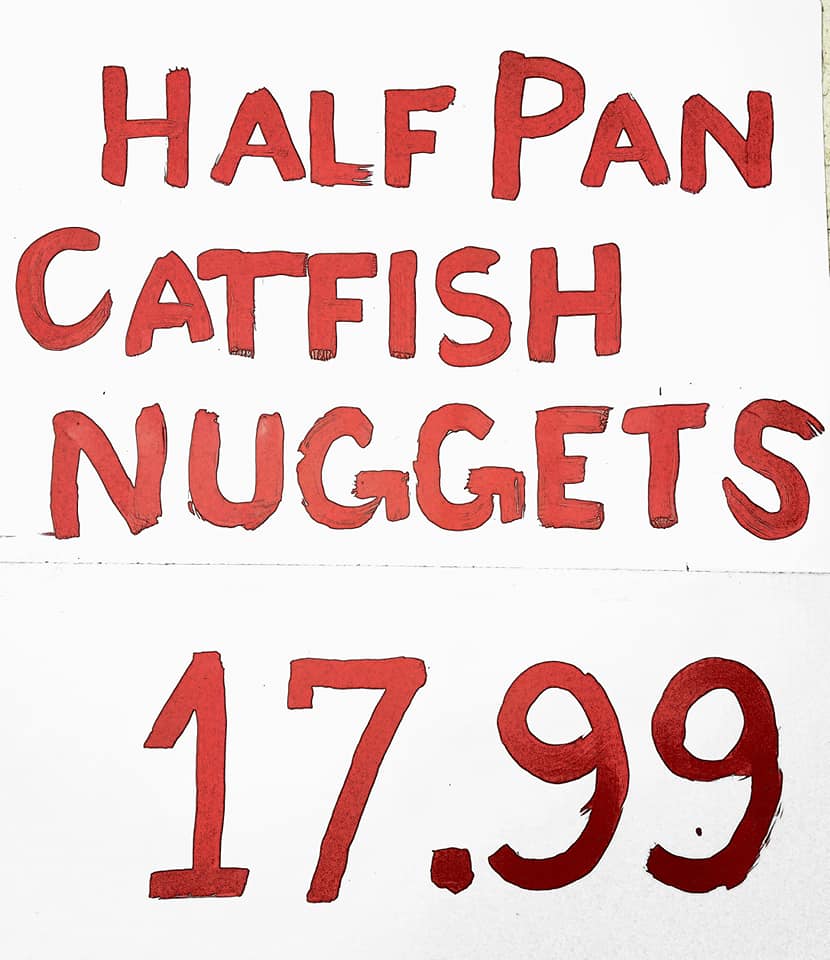 HALF PAN
CATFISH
NUGGETS
17.99